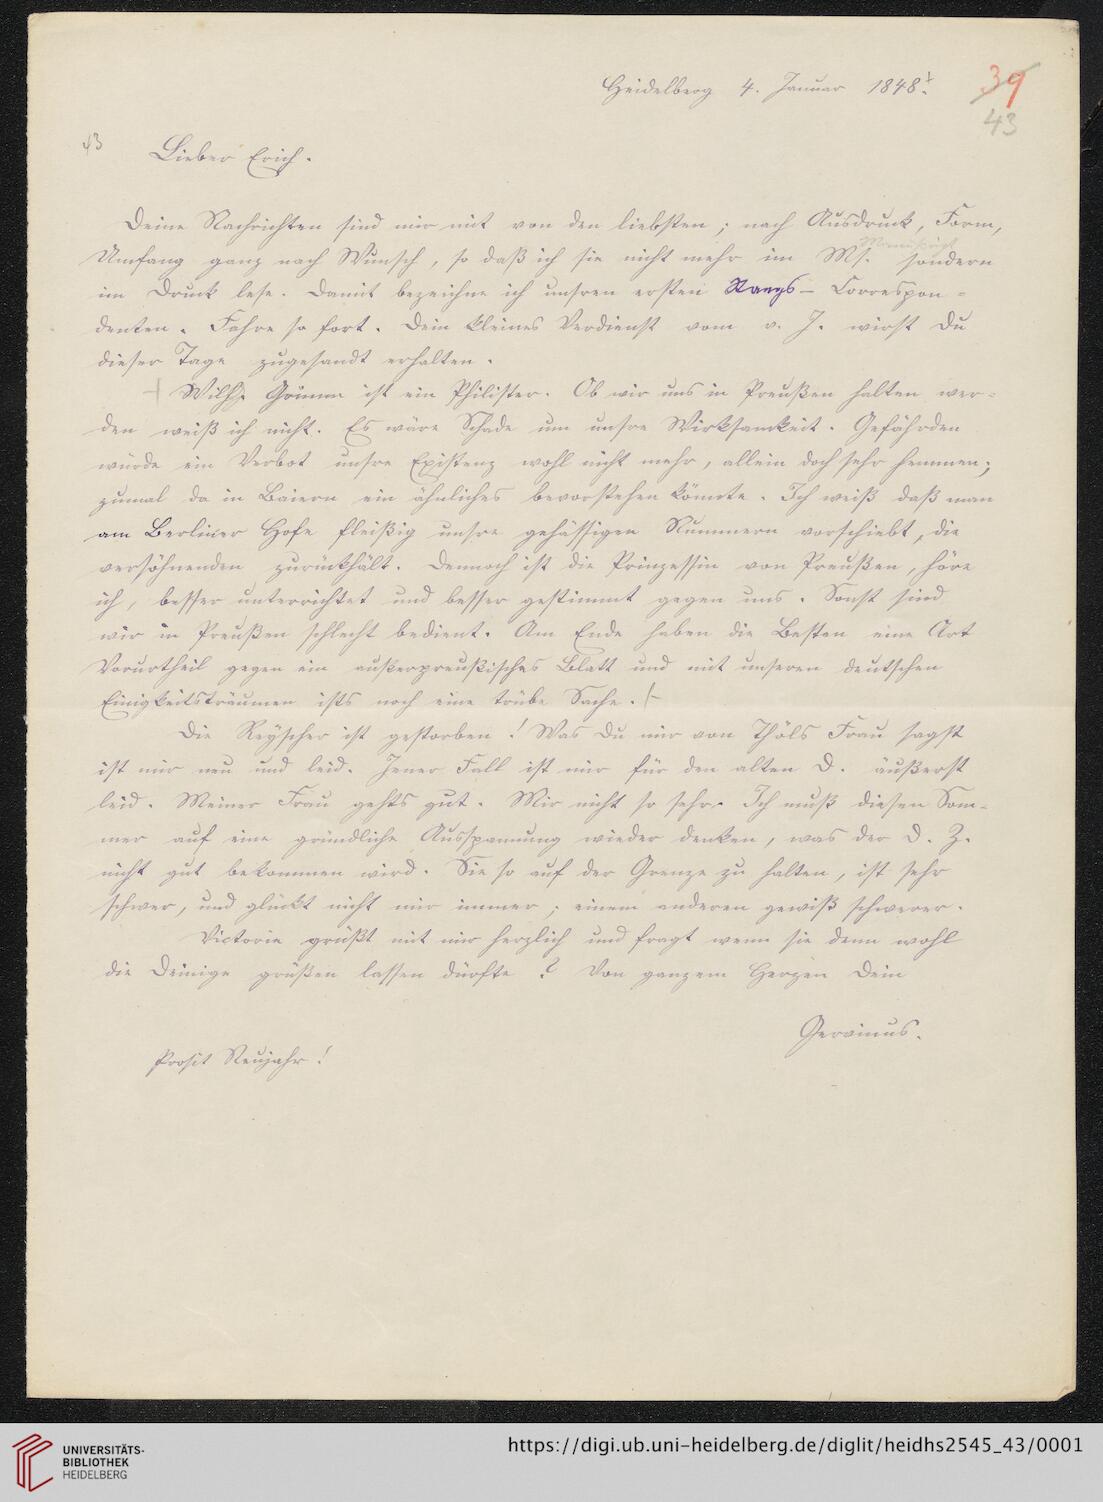 Heidelberg 4. Januar 1848.
39
43
43
Lieber Erich.
Deine Nachrichten sind mir mit von den liebsten; nach Ausdruck, Form,
Manuskript
Umfang ganz nach Wunsch, so daß ich sie nicht mehr im Ms. sondern
im Druck lese. Damit bezeichne ich unsren ersten Rangs- Correspon-
denten. Fahre so fort. Dein kleines Verdienst vom v. J. wirst Du
dieser Tage zugesandt erhalten.
Wilh. Grimm ist ein Philister. Ob wir uns in Preußen halten wer-
den weiß ich nicht. Es wäre Schade um unsre Wirksamkeit. Gefährden
würde ein Verbot unsre Existenz wohl nicht mehr, allein doch sehr hemmen;
zumal da in Baiern ein ähnliches bevorstehen könnte. Ich weiß daß man
am Berliner Hofe fleißig unsre gehässigen Nummern vorschiebt, die
versöhnenden zurückhält. Dennoch ist die Prinzessin von Preußen, höre
ich, besser unterrichtet und besser gestimmt gegen uns. Sonst sind
wir in Preußen schlecht bedient. Am Ende haben die Besten eine Art
Vorurtheil gegen ein außerpreußisches Blatt und mit unseren deutschen
Einigkeitsträumen ists noch eine trübe Sache.
Die Reyscher ist gestorben! Was Du mir von Thöls Frau sagst
ist mir neu und leid. Jener Fall ist mir für den alten D. äußerst
leid. Meiner Frau gehts gut. Mir nicht so sehr. Ich muß diesen Som-
mer auf eine gründliche Ausspannung wieder denken, was der D. Z.
nicht gut bekommen wird. Sie so auf der Grenze zu halten, ist sehr
schwer, und glückt nicht mir immer; einem anderen gewiß schwerer.
Victorie grüßt mit mir herzlich und fragt wenn sie denn wohl
die Deinige grüßen lassen dürfte? Von ganzem Herzen Dein
Gervinus.
Prosit Neujahr!
UNIVERSITÄTS-
BIBLIOTHEK
HEIDELBERG
https://digi.ub.uni-heidelberg.de/diglit/heidhs2545_43/0001